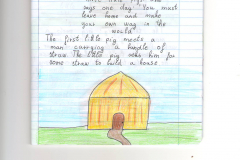 says one day "You must
leave home and make
your own way in the
world"
The first little pig meets a
man carrying a bundle of
straw. The little pig asks him for
some straw to build a house